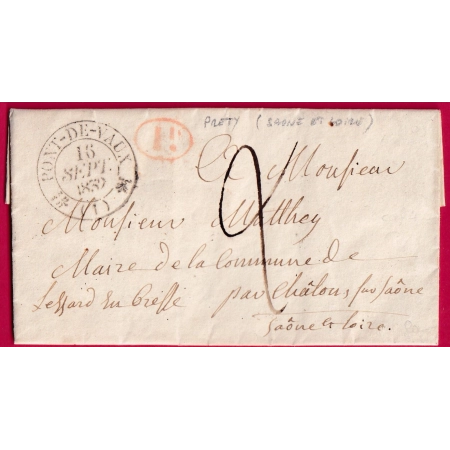 PRETY (SAONE ET LOIRE)
PONT-DE-VAUX
16
SEPT.
1839
(1)
2
A Monsieur
Monsieur Matthey
Maire de la Commune de
Lessard En Bresse par Châlon, sur Saône
Saône et Loire.